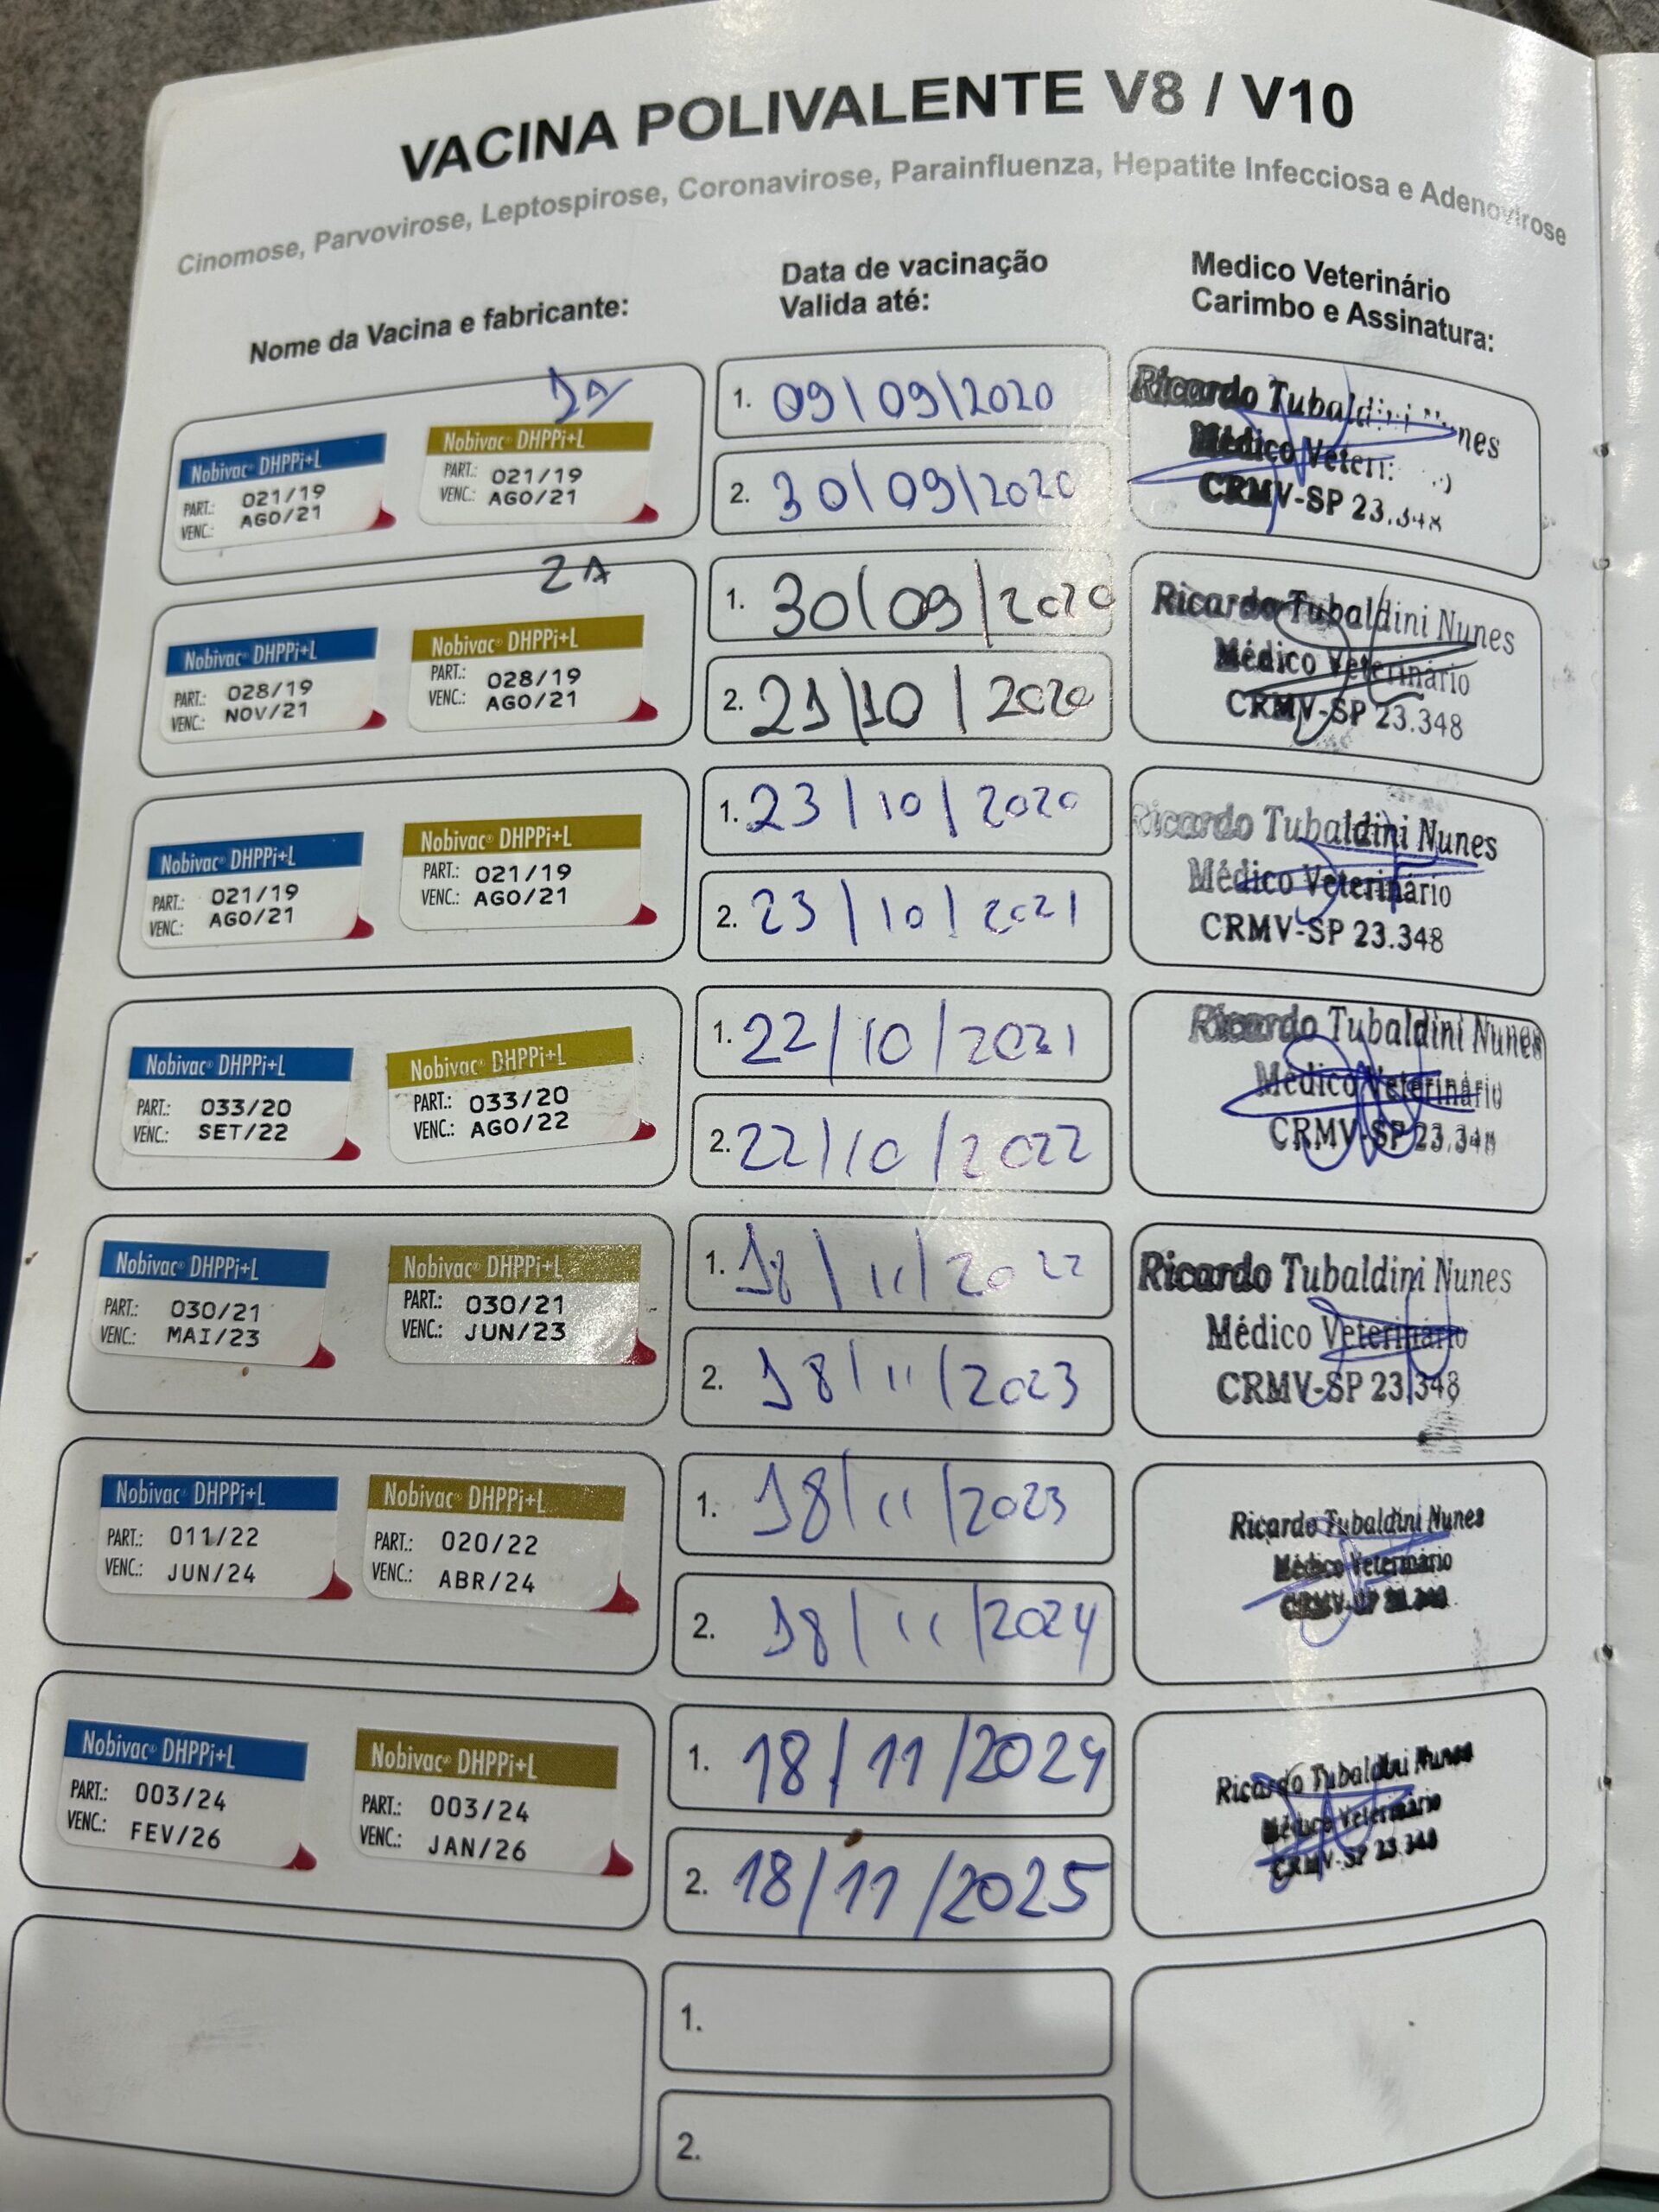 VACINA POLIVALENTE V8 / V10
Cinomose, Parvovirose, Leptospirose, Coronavirose, Parainfluenza, Hepatite Infecciosa e Adenovirose
Nome da Vacina e fabricante:
Data de vacinação
Valida até:
Medico Veterinário
Carimbo e Assinatura:
1A
Nobivac® DHPPi+L
PART.: 021/19
VENC.: AGO/21
Nobivac® DHPPi+L
PART.: 021/19
VENC.: AGO/21
1. 09/09/2020
2. 30/09/2020
Ricardo Tubaldini Nunes
Médico
CRMV-SP
2A
Nobivac® DHPPi+L
PART.: 028/19
VENC.: NOV/21
Nobivac® DHPPi+L
PART.: 028/19
VENC.: AGO/21
1. 30/09/2020
2. 21/10/2020
Ricardo Tubaldini Nunes
Médico Veterinário
CRMV-SP 23.348
Nobivac® DHPPi+L
PART.: 021/19
VENC.: AGO/21
Nobivac® DHPPi+L
PART.: 021/19
VENC.: AGO/21
1. 23/10/2020
2. 23/10/2021
Ricardo Tubaldini Nunes
Médico Veterinário
CRMV-SP 23.348
Nobivac® DHPPi+L
PART.: 033/20
VENC.: SET/22
Nobivac® DHPPi+L
PART.: 033/20
VENC.: AGO/22
1. 22/10/2021
2. 22/10/2022
Ricardo Tubaldini Nunes
Médico Veterinário
CRMV-SP 23.348
Nobivac® DHPPi+L
PART.: 030/21
VENC.: MAI/23
Nobivac® DHPPi+L
PART.: 030/21
VENC.: JUN/23
1. 18/11/2022
2. 18/11/2023
Ricardo Tubaldini Nunes
Médico Veterinário
CRMV-SP 23.348
Nobivac® DHPPi+L
PART.: 011/22
VENC.: JUN/24
Nobivac® DHPPi+L
PART.: 020/22
VENC.: ABR/24
1. 18/11/2023
2. 18/11/2024
Ricardo Tubaldini Nunes
Médico Veterinário
Nobivac® DHPPi+L
PART.: 003/24
VENC.: FEV/26
Nobivac® DHPPi+L
PART.: 003/24
VENC.: JAN/26
1. 18/11/2024
2. 18/11/2025
Ricardo Tubaldini Nunes
Médico Veterinário
CRMV-SP 23.348
1.
2.